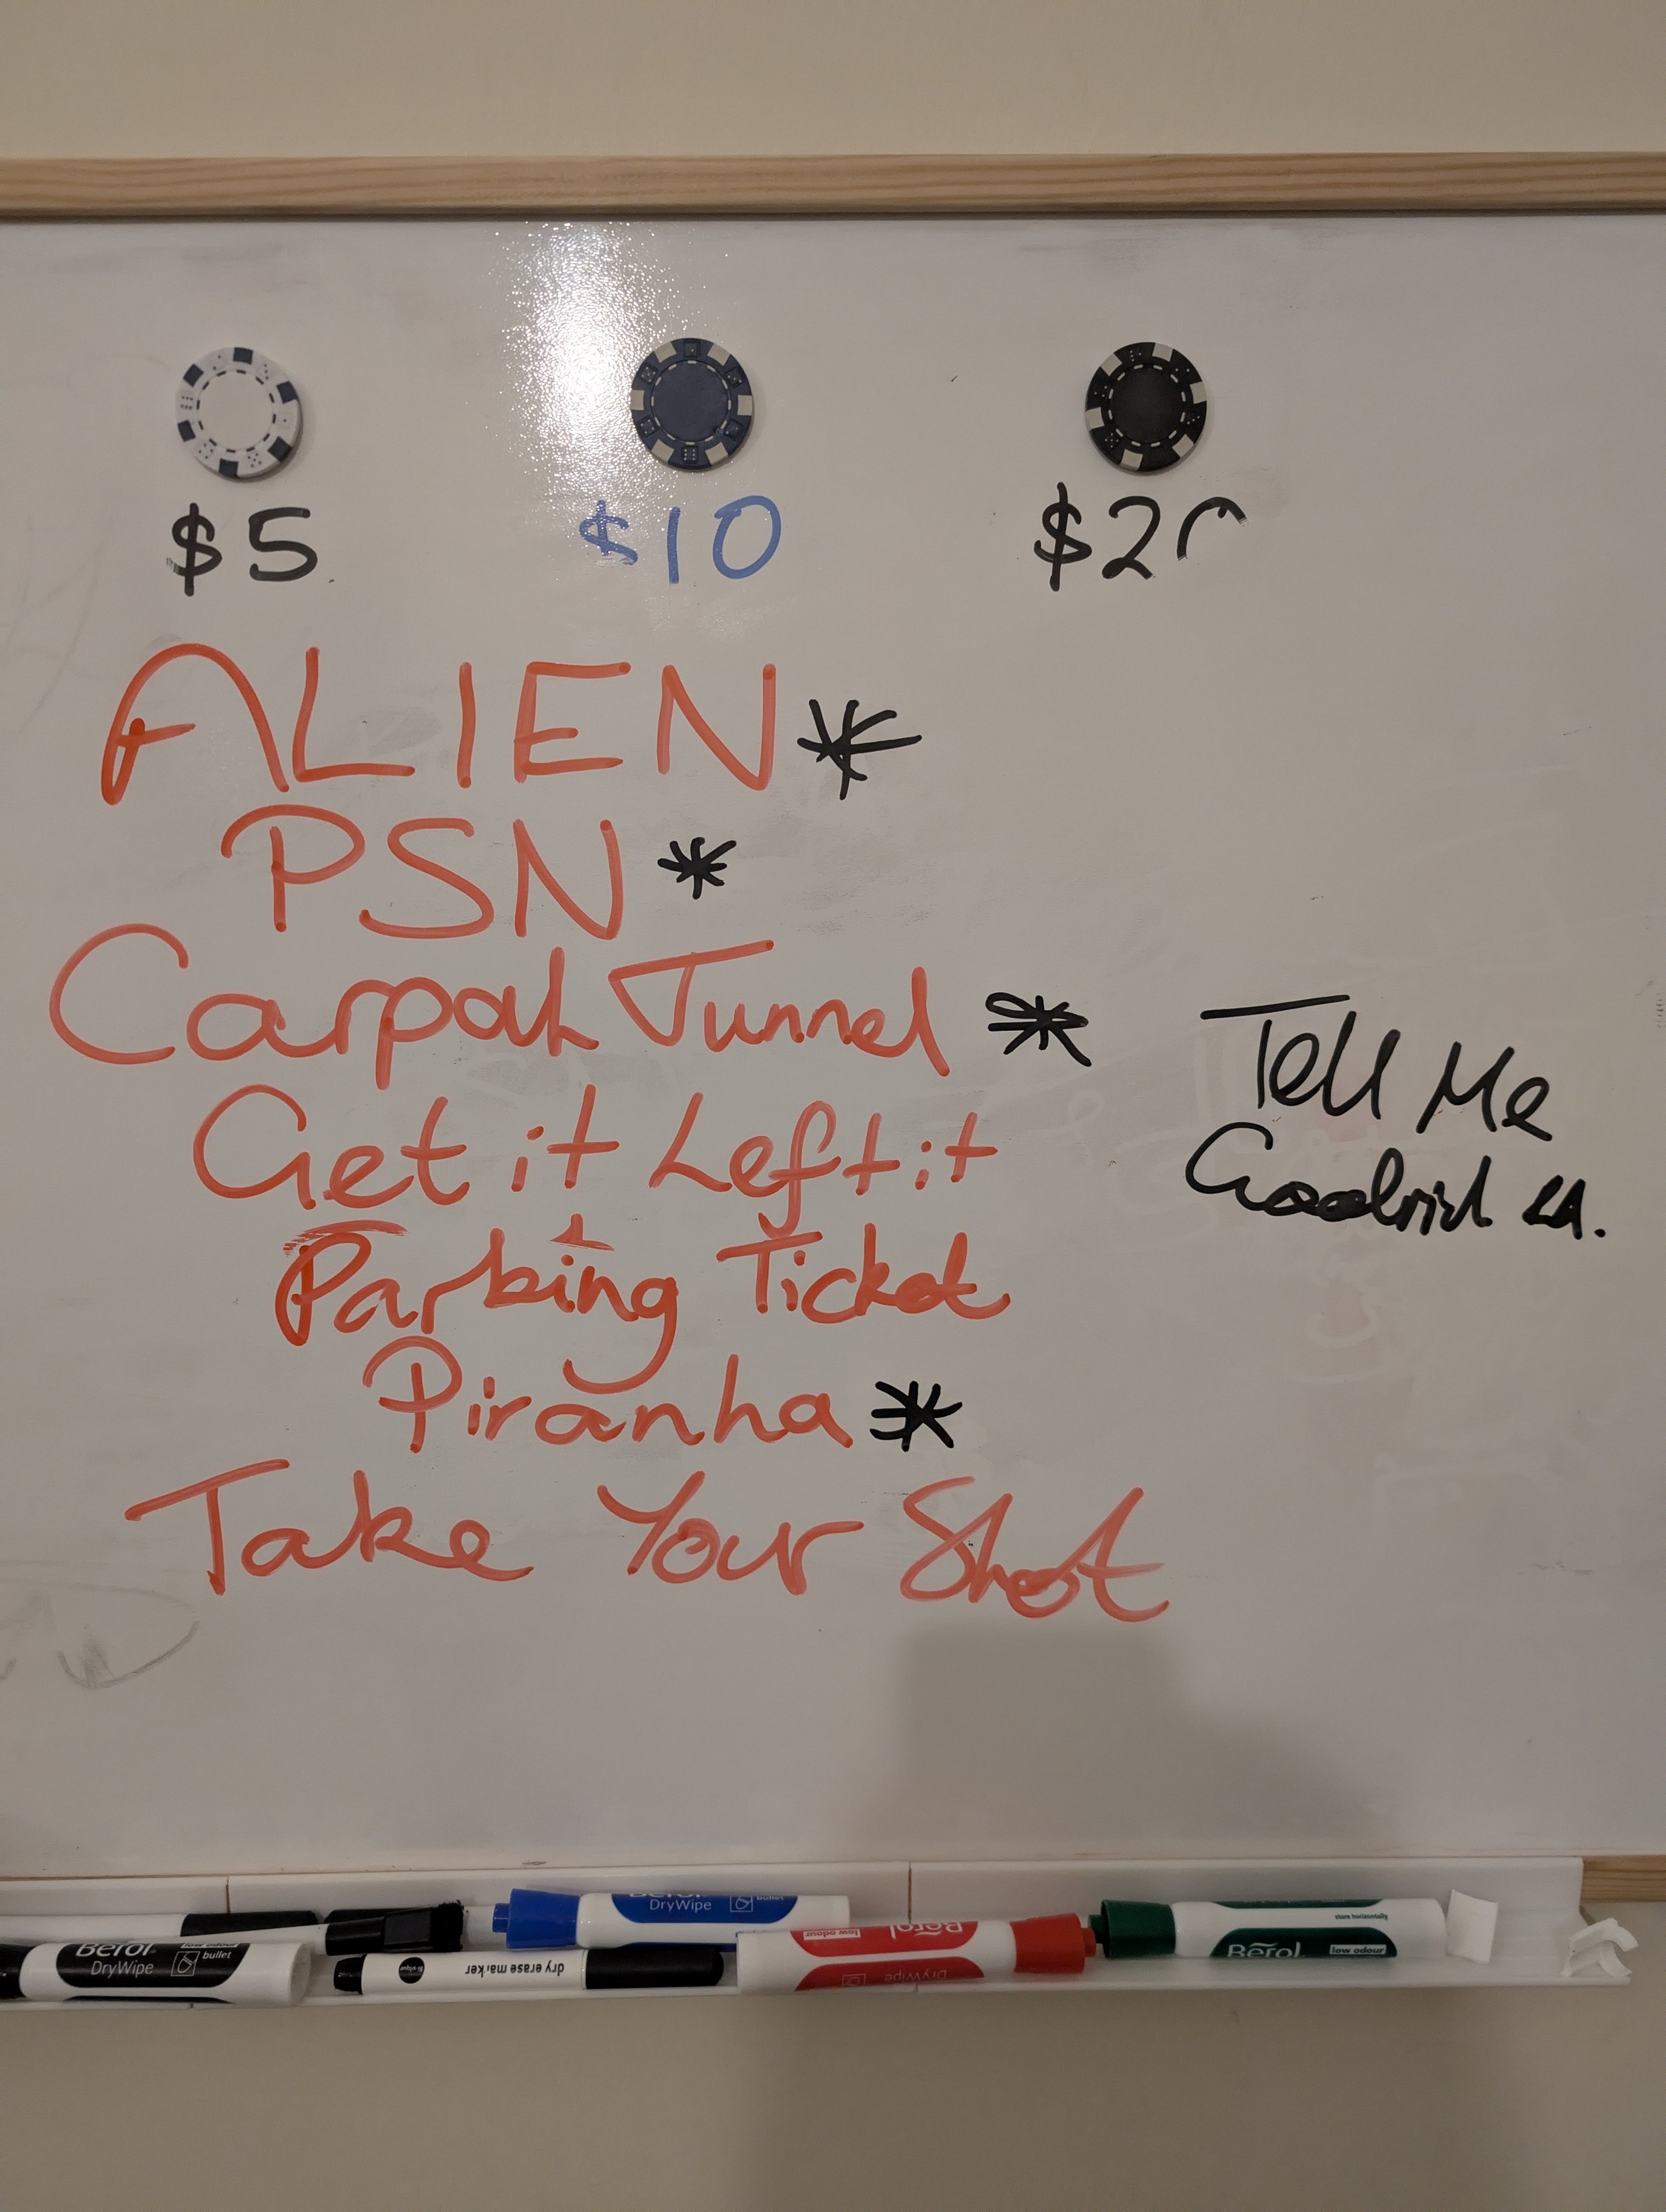 $5 $10 $20
ALIEN *
PSN *
Carpal Tunnel *
Tell Me
Get it Left it
Parking Ticket
Piranha *
Take Your Shot
Berol
DryWipe
bullet
dry erase marker
DryWipe
bullet
Berol
low odour
DryWipe
store horizontally
Berol
low odour